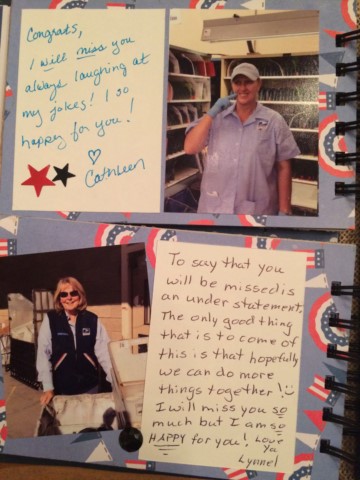 Congrats,
I will miss you
always laughing at
my jokes! I so
happy for you!
♡
Cathleen
To say that you
will be missed is
an under statement,
The only good thing
that is to come of
this is that hopefully
we can do more
things together!
I will miss you so
much but I am so
HAPPY for you! Love
Ya
Lynnel